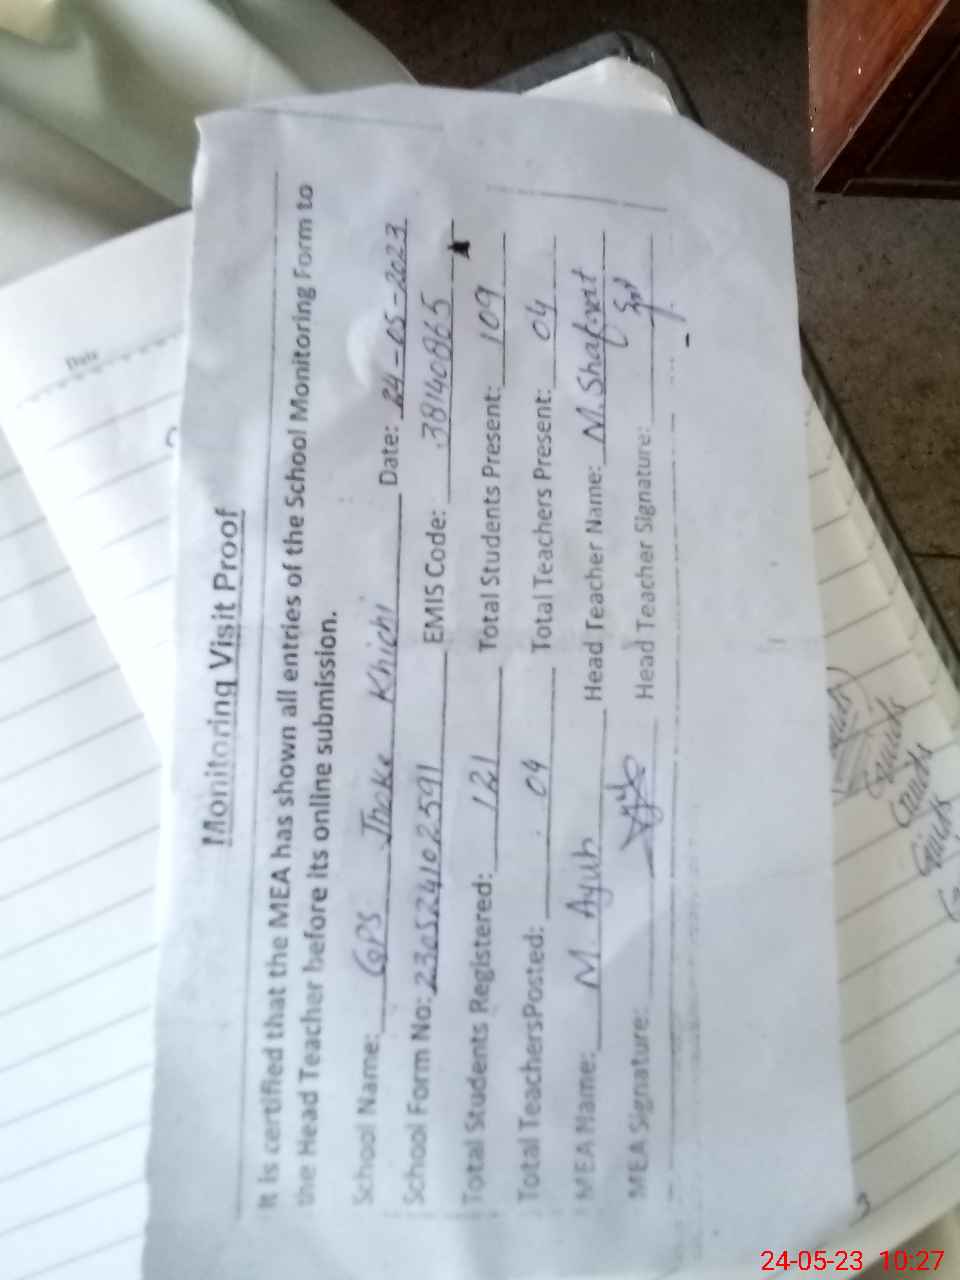 Monitoring Visit Proof
It is certified that the MEA has shown all entries of the School Monitoring Form to
the Head Teacher before its online submission.
School Name: GPS Jhoke Khichi Date: 24-05-2023
School Form No: 23052410 2591 EMIS Code: 38140865
Total Students Registered: 121 Total Students Present: 109
Total TeachersPosted: 04 Total Teachers Present: 04
MEA Name: M. Ayub Head Teacher Name: M.Shafaat
MEA Signature: Head Teacher Signature:
Date
24-05-23 10:27